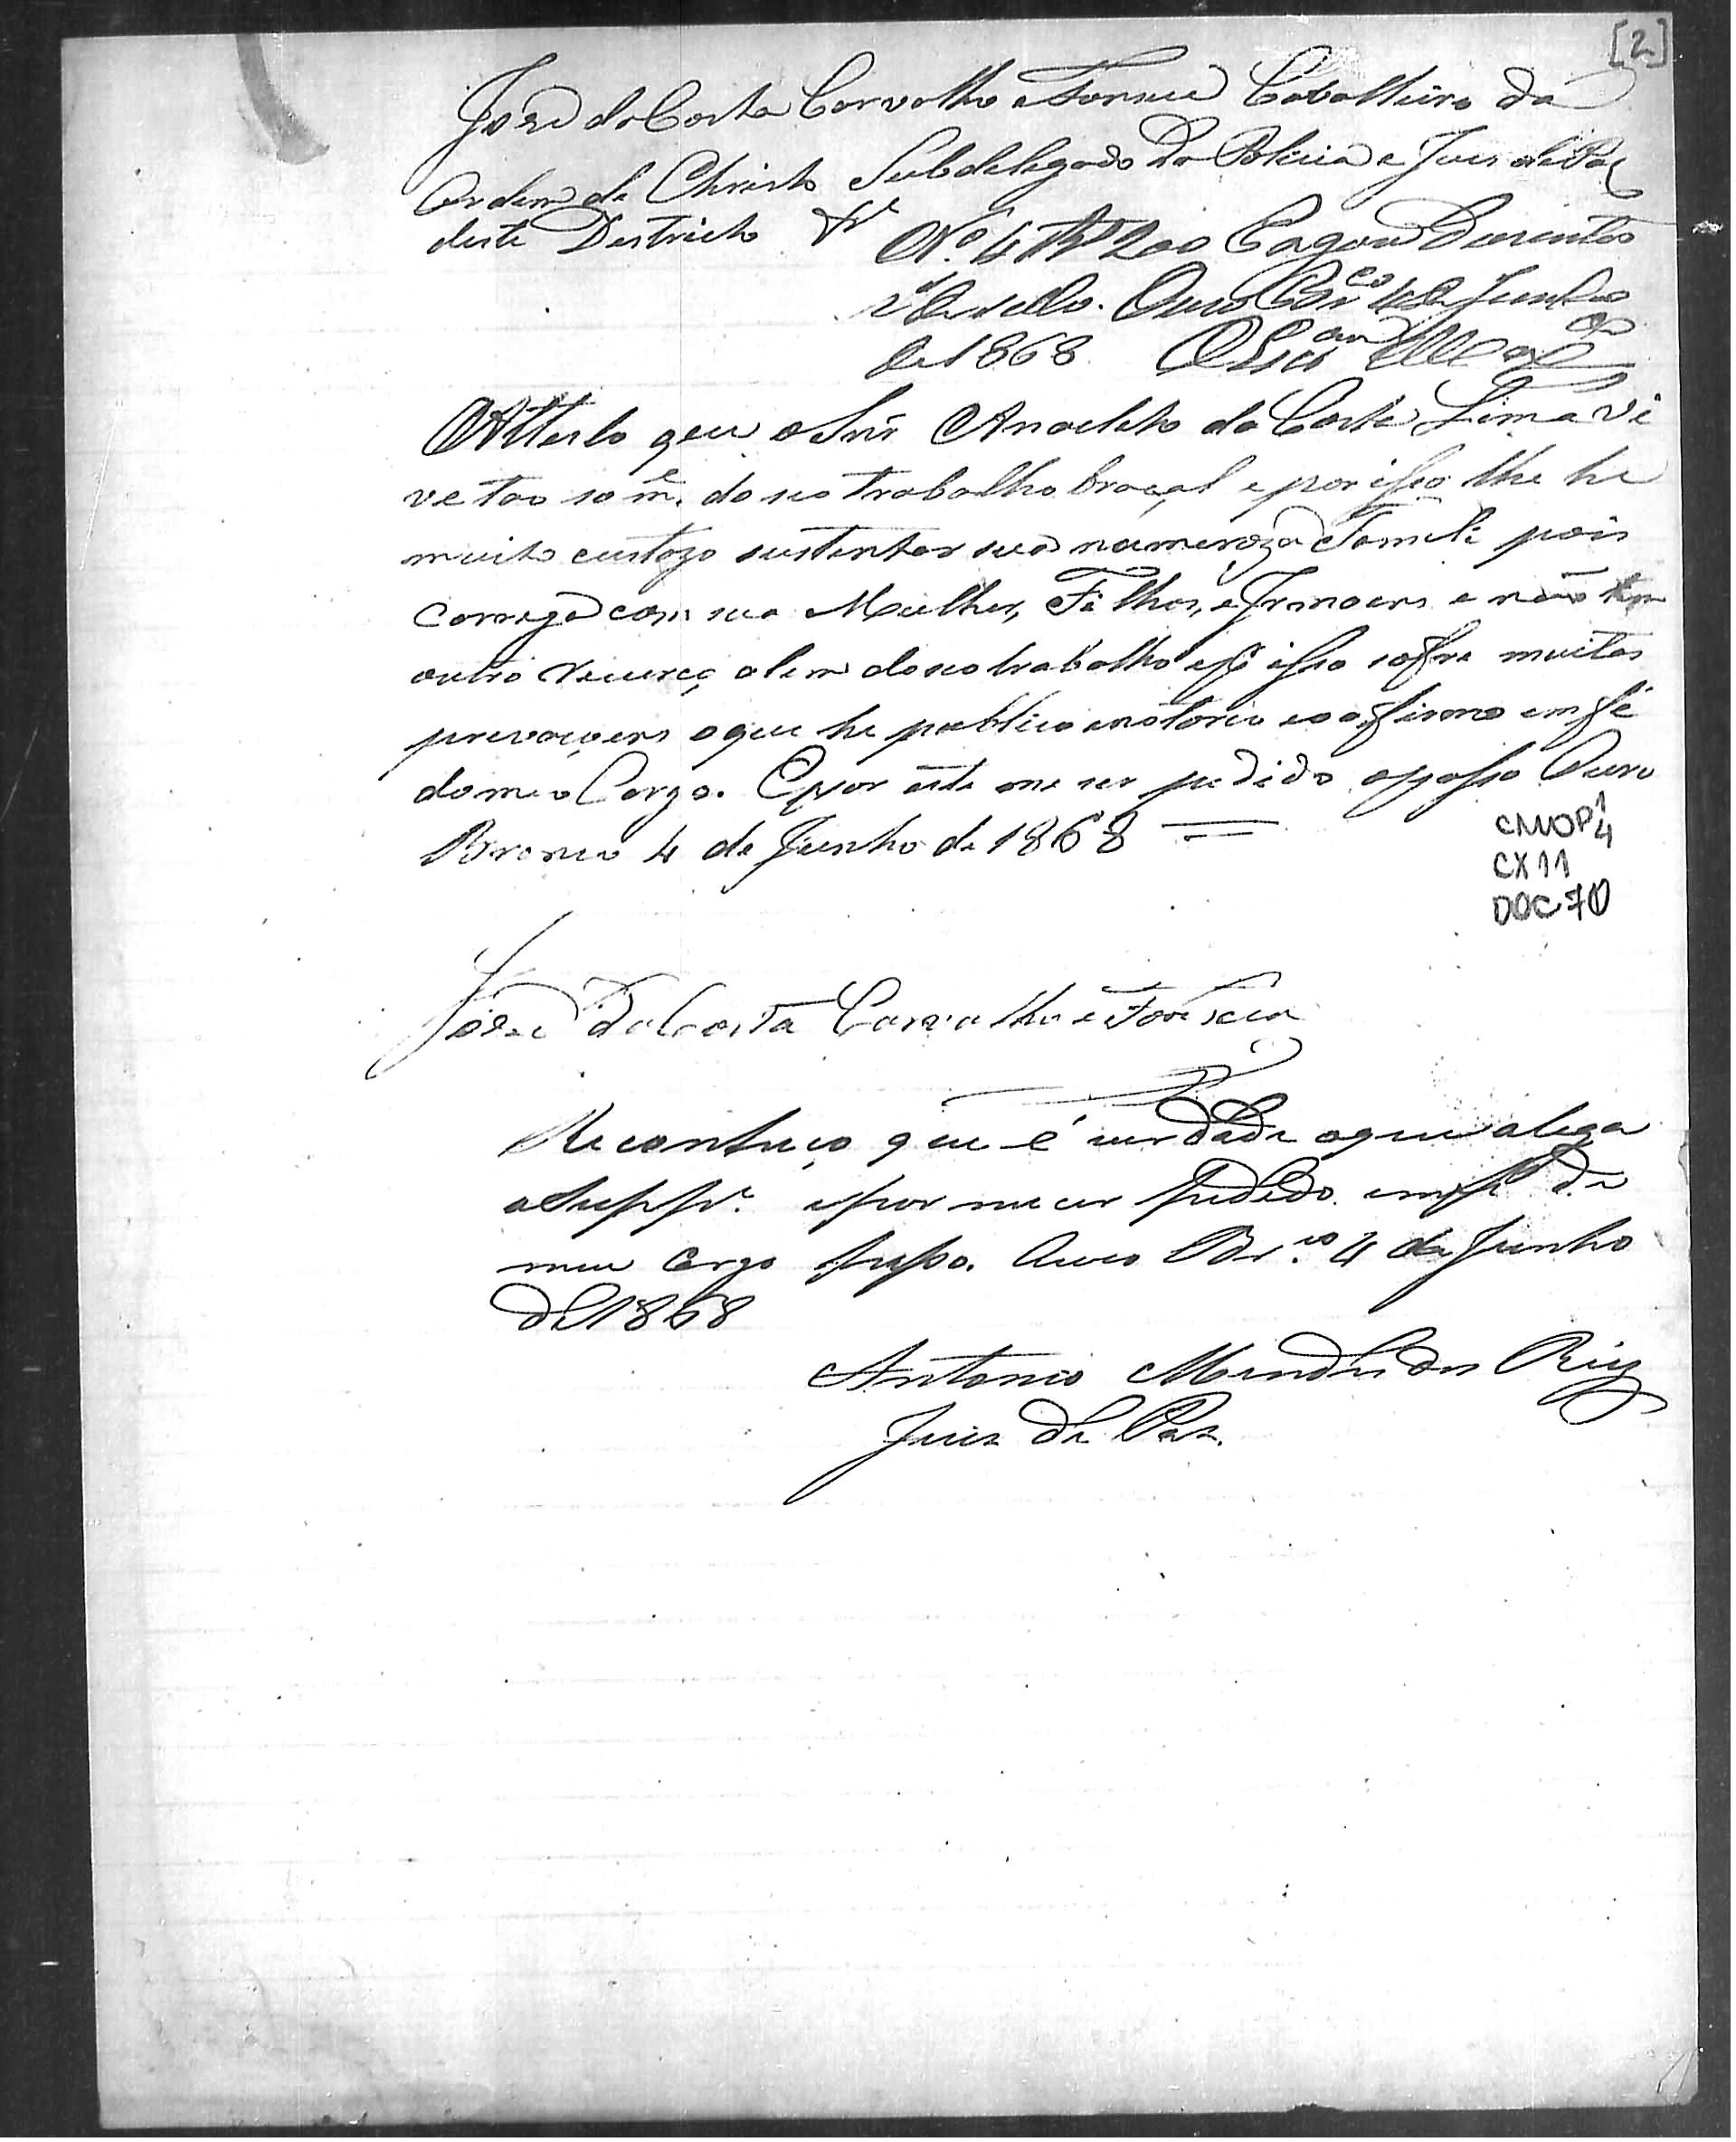 [2]
José da Costa Carvalho e Fonseca Cavalheiro da
Ordem de Christo Subdelegado da Policia e Juis de Paz
deste Destricto &ª
Nº 4 200 Pagou Duzentos
rs de sello. Ouro Brco 4 de Junho
de 1868 O Escam
Attesto que o Snr Anacleto da Costa Lima vi
ve tao som.e do seo trabalho braçal e por isso lhe he
muito custozo sustentar sua numeroza Famili pois
carrega com sua Mulher, Filhos, e Irmaens e não tem
outro recurço alem do seo trabalho e pr isso sofre muitas
prevaçoens o que he publico e notorio e o afirmo em fé
do meo Cargo. E por este me ser pedido o passo Ouro
Branco 4 de Junho de 1868
CMOP 1/4
CX 11
DOC 70
José da Costa Carvalho e Fonseca
Reconheço que é verdade o que alega
o Suppe. e por me ser pedido em fé de
meu cargo passo. Ouro Br.co 4 de Junho
de 1868
Antonio Mendes dos Reis
Juis de Pas.